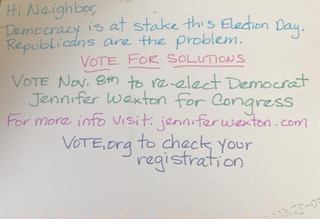 Hi Neighbor,
Democracy is at stake this Election Day.
Republicans are the problem.
VOTE FOR SOLUTIONS
VOTE Nov. 8th to re-elect Democrat
Jennifer Wexton for Congress
For more info visit: jenniferwexton.com
VOTE.org to check your
registration